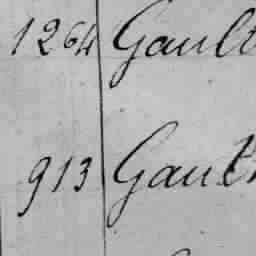 1264 Gault
913 Gault